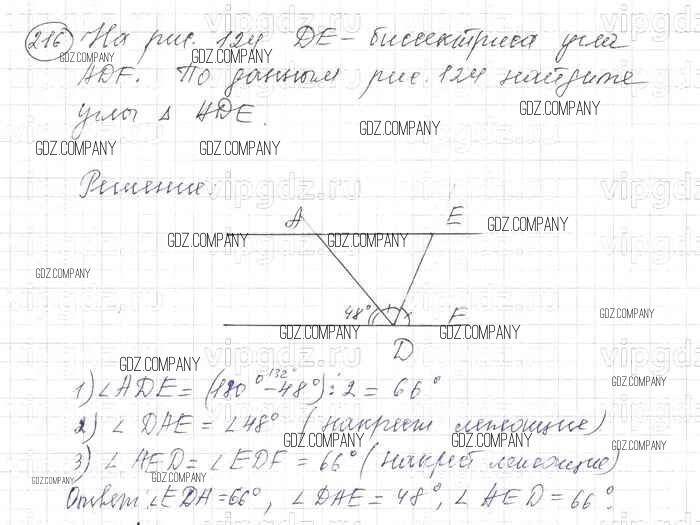 216 На рис. 124 DE - биссектриса угла
ADF. По данным рис. 124 найдите
углы Δ ADE.
Решение.
A E
48° F
D
1) ∠ADE = (180° - 48°) : 2 = 66°
132°
2) ∠ DAE = ∠48° (накрест лежащие)
3) ∠ AED = ∠ EDF = 66° (накрест лежащие)
Ответ: ∠EDA = 66°, ∠ DAE = 48°, ∠ AED = 66°.
GDZ.COMPANY
vipgdz.ru